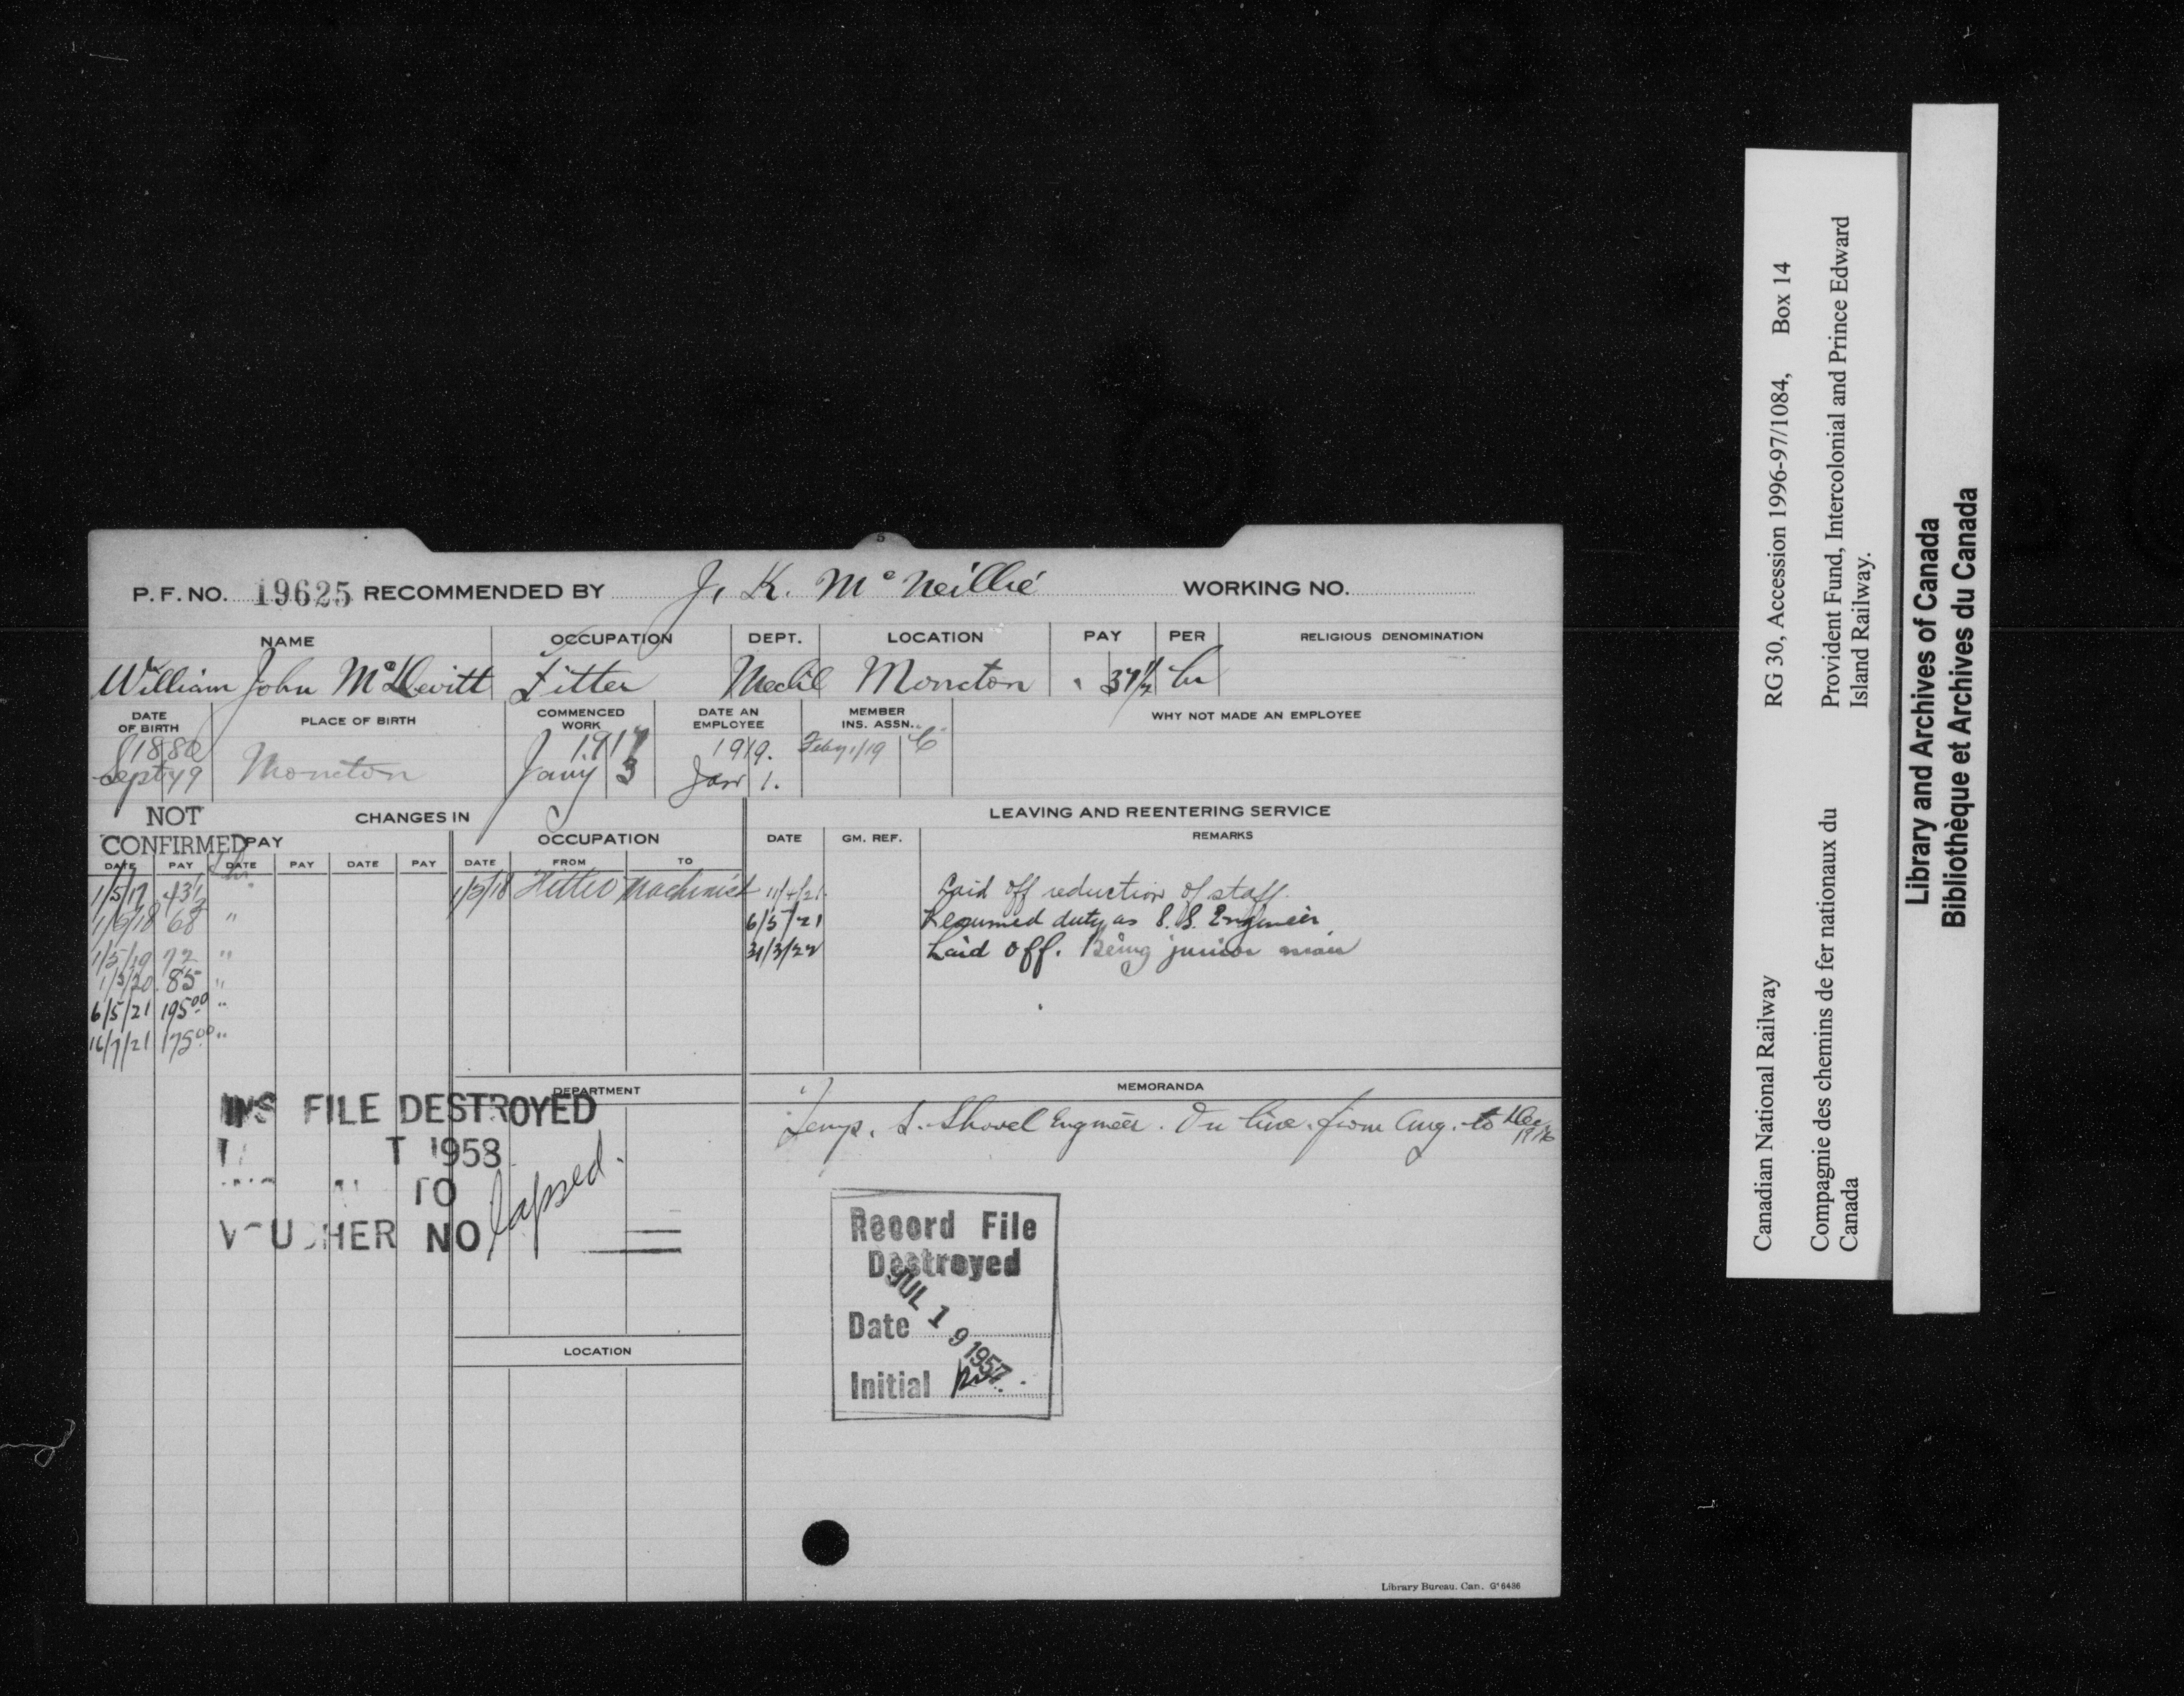 5
P.F. NO. 19625 RECOMMENDED BY J. K. McNeillie WORKING NO.
NAME OCCUPATION DEPT. LOCATION PAY PER RELIGIOUS DENOMINATION
William John McDevitt Fitter Mechl Moncton . 37½ hr
DATE OF BIRTH PLACE OF BIRTH COMMENCED WORK DATE AN EMPLOYEE MEMBER INS. ASSN. WHY NOT MADE AN EMPLOYEE
1880 1917 1919. Feby 1/19 "C"
Sept Moncton Jany 3 Jan 1.
NOT CONFIRMED
CHANGES IN LEAVING AND REENTERING SERVICE
PAY OCCUPATION DATE GM. REF. REMARKS
DATE PAY DATE PAY DATE PAY DATE FROM TO
1/5/17 43½ " 1/5/18 Fitter Machinist 11/4/21 Laid off reduction of staff.
68 " 6/5/21 Resumed duty as S.S. Engineer
1/5/19 72 " 31/3/22 Laid off. Being junior man
1/5/20 .85 "
6/5/21 195.00 "
16/7/21 175.00 "
DEPARTMENT MEMORANDA
Temp. S. Shovel Engineer. On line from Aug. to Dec 1916
INS FILE DESTROYED
T 1958
TO
VOUCHER NO lapsed.
Record File
Destroyed
Date JUL 19 1957
Initial
LOCATION
Library Bureau. Can. G'6486
Canadian National Railway RG 30, Accession 1996-97/1084, Box 14
Compagnie des chemins de fer nationaux du Canada
Provident Fund, Intercolonial and Prince Edward Island Railway.
Library and Archives of Canada
Bibliothèque et Archives du Canada